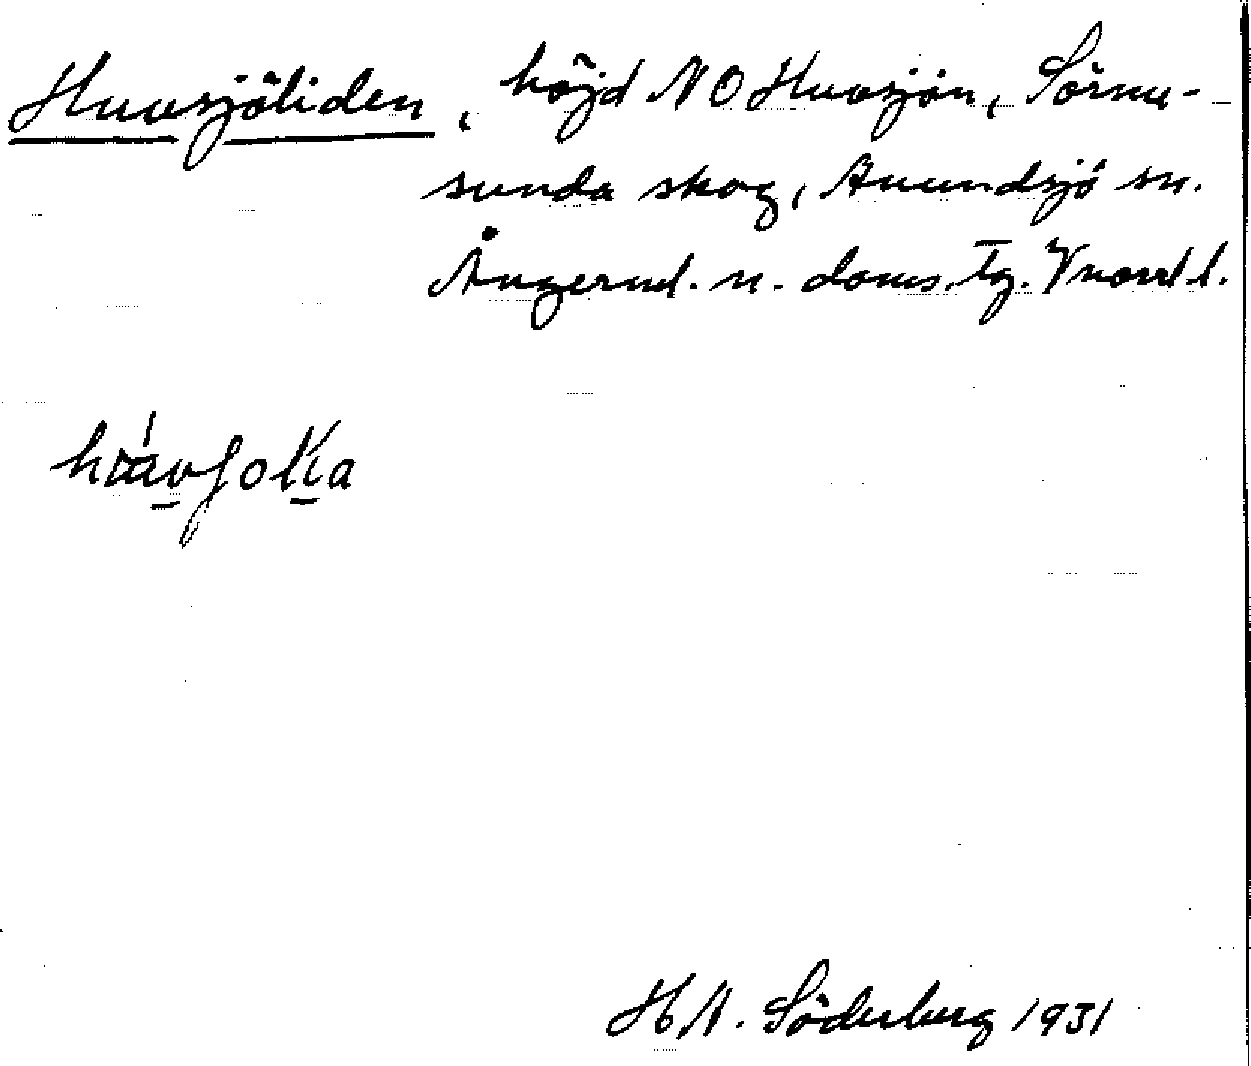 Huvsjöliden, höjd NO Huvsjön, Sörnu-
sunda skog, Anundsjö sn.
Ångerml. n. doms. tg. Vnorrl. l.
H A. Söderberg 1931